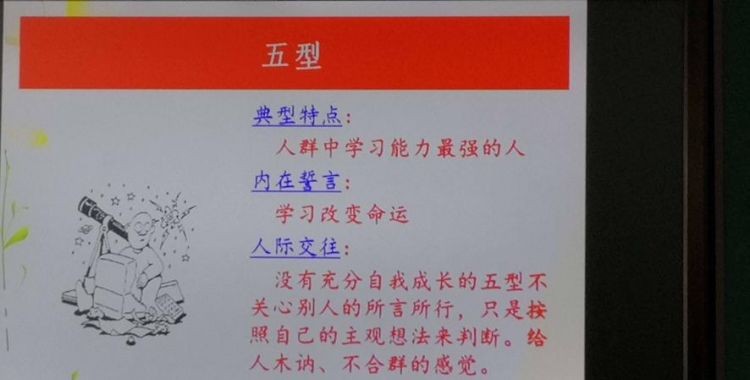 五型
典型特点：
人群中学习能力最强的人
内在誓言：
学习改变命运
人际交往：
没有充分自我成长的五型不
关心别人的所言所行，只是按
照自己的主观想法来判断。给
人木讷、不合群的感觉。